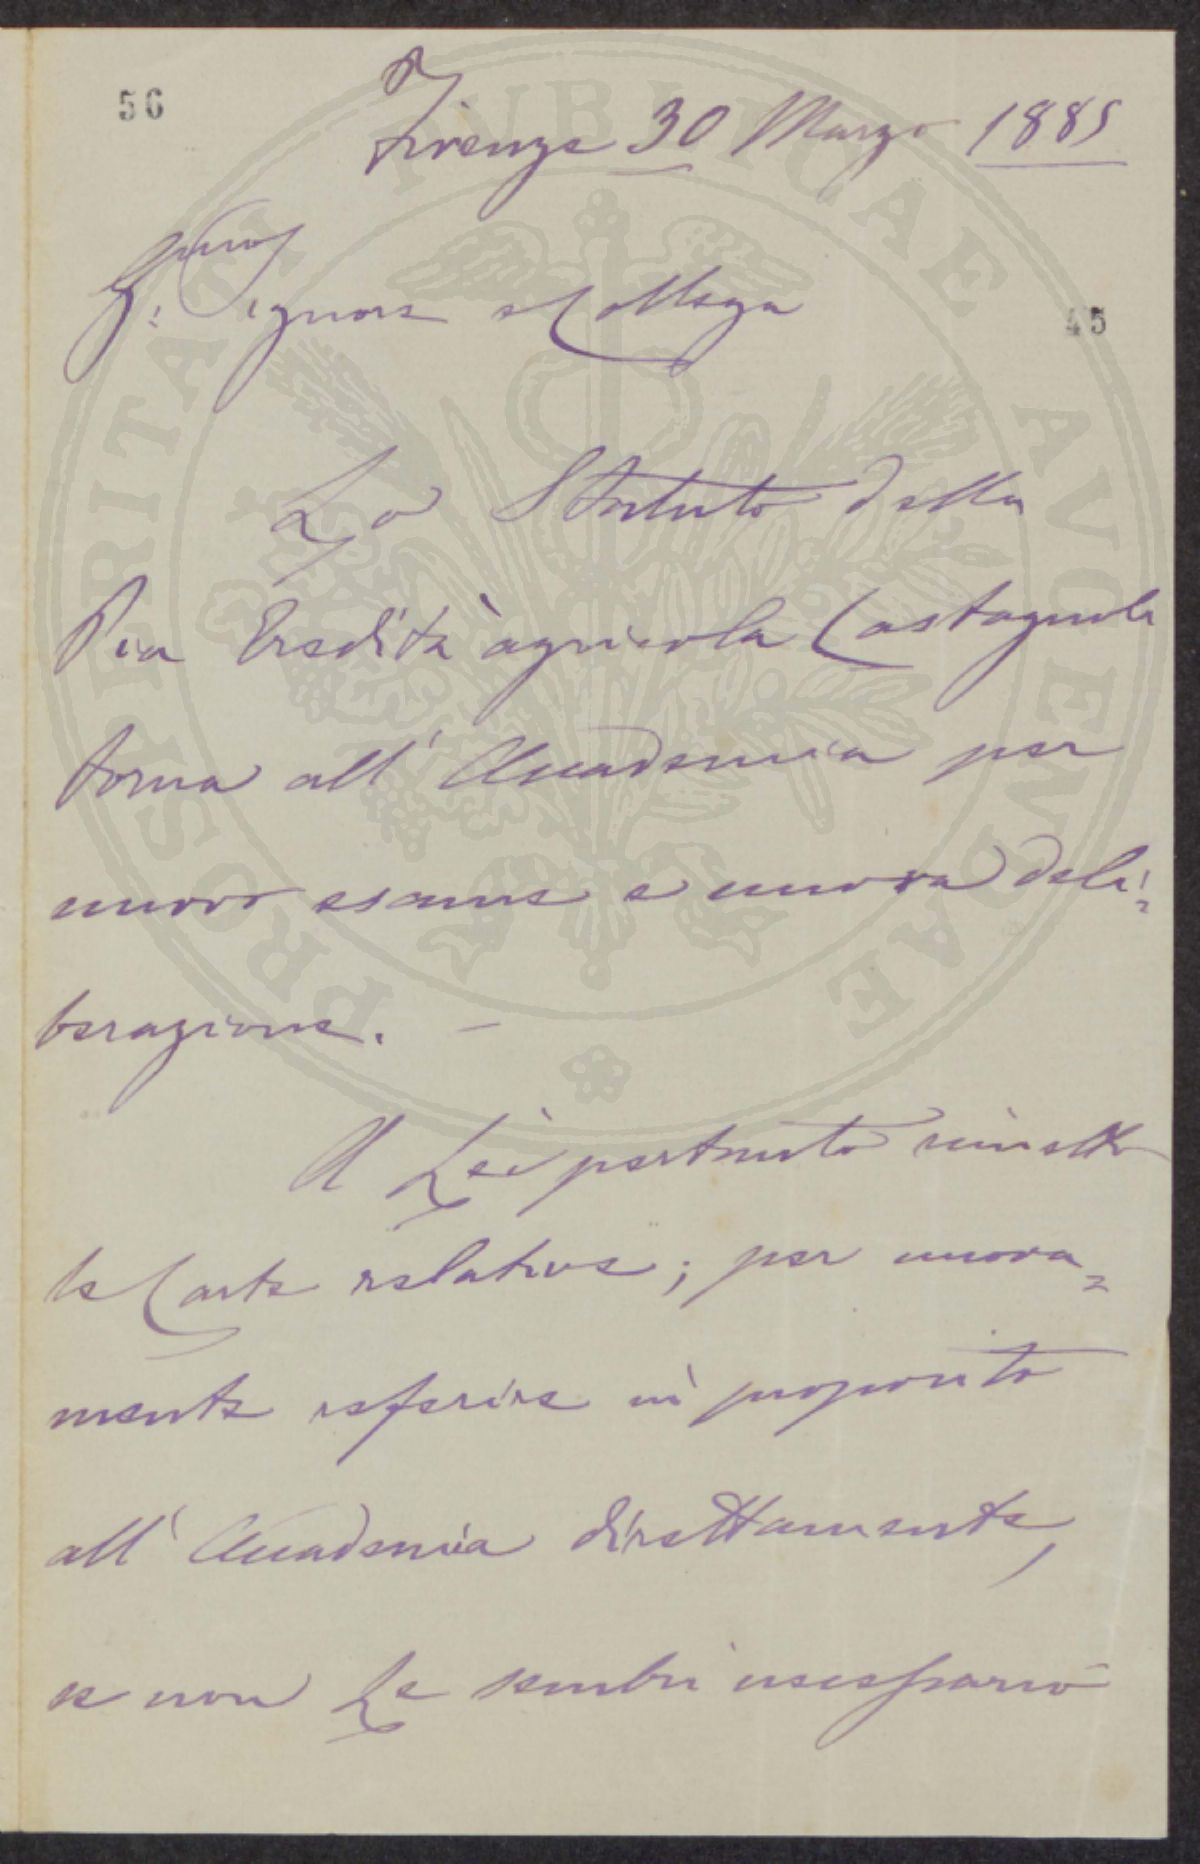 56
Firenze 30 Marzo 1885
Signore e Collega
45
Lo Statuto della
Pia Eredità agricola Castagnola
torna all'Accademia per
nuovo esame e nuova deli=
berazione. —
A Lei pertanto rimetto
le Carte relative; per nuova=
mente referire in proposito
all'Accademia direttamente,
se non Le sembri necessario
PROSPERITATI PVBLICAE AVGENDAE